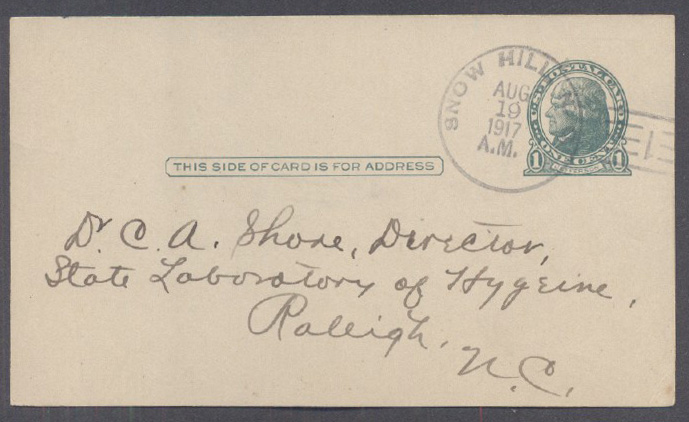 SNOW HILL
AUG
19
1917
A.M.
U.S. POSTAL CARD
1 ONE CENT 1
JEFFERSON
THIS SIDE OF CARD IS FOR ADDRESS
Dr C. A. Shore, Director,
State Laboratory of Hygeine,
Raleigh,
N.C.